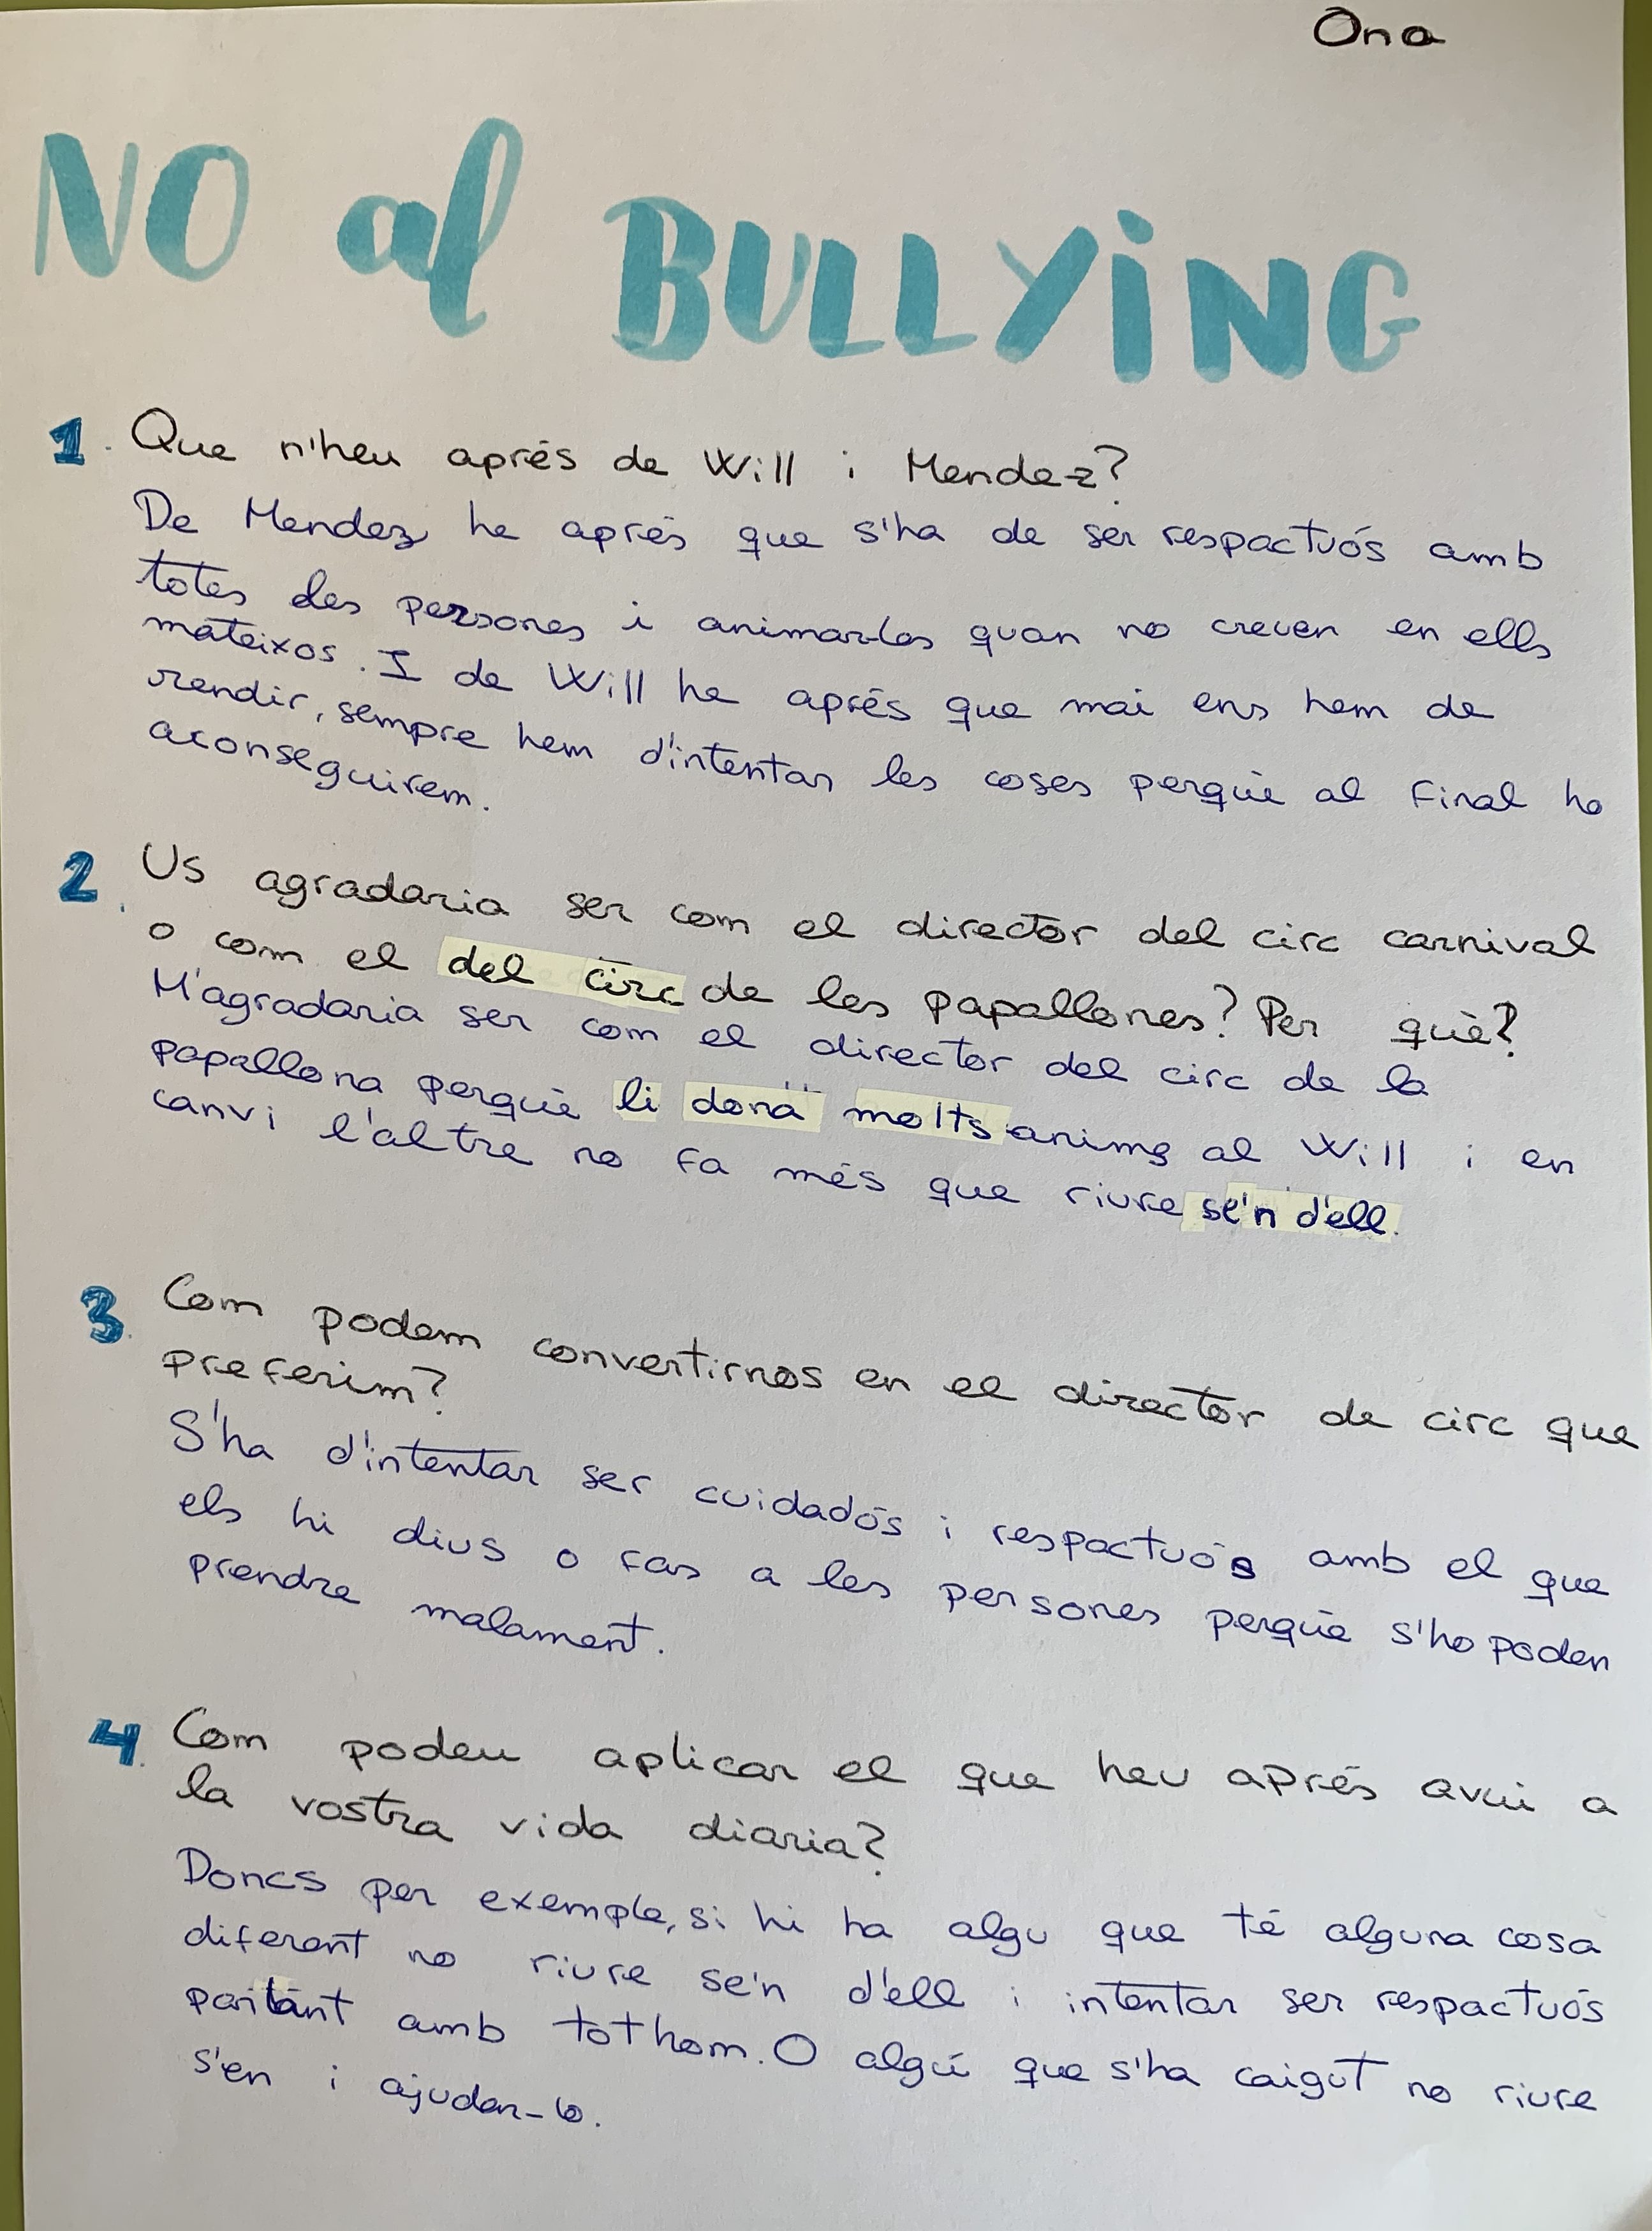 Ona
NO al BULLYING
1. Que n'heu aprés de Will i Mendez?
De Mendez he aprés que s'ha de ser respactuós amb
totes les persones i animar-les quan no creuen en ells
mateixos. I de Will he aprés que mai ens hem de
rendir, sempre hem d'intentar les coses perquè al final ho
aconseguirem.
2. Us agradaria ser com el director del circ carnival
o com el del circ de les papallones? Per què?
M'agradaria ser com el director del circ de la
papallona perquè li dona molts anims al Will i en
canvi l'altre no fa més que riure se'n d'ell.
3. Com podem convertirnos en el director de circ que
preferim?
S'ha d'intentar ser cuidadós i respactuós amb el que
els hi dius o fas a les persones perquè s'ho poden
prendre malament.
4. Com podeu aplicar el que heu aprés avui a
la vostra vida diaria?
Doncs per exemple, si hi ha algu que té alguna cosa
diferent no riure se'n d'ell i intentar ser respactuós
parlant amb tothom. O algú que s'ha caigut no riure
s'en i ajudar-lo.